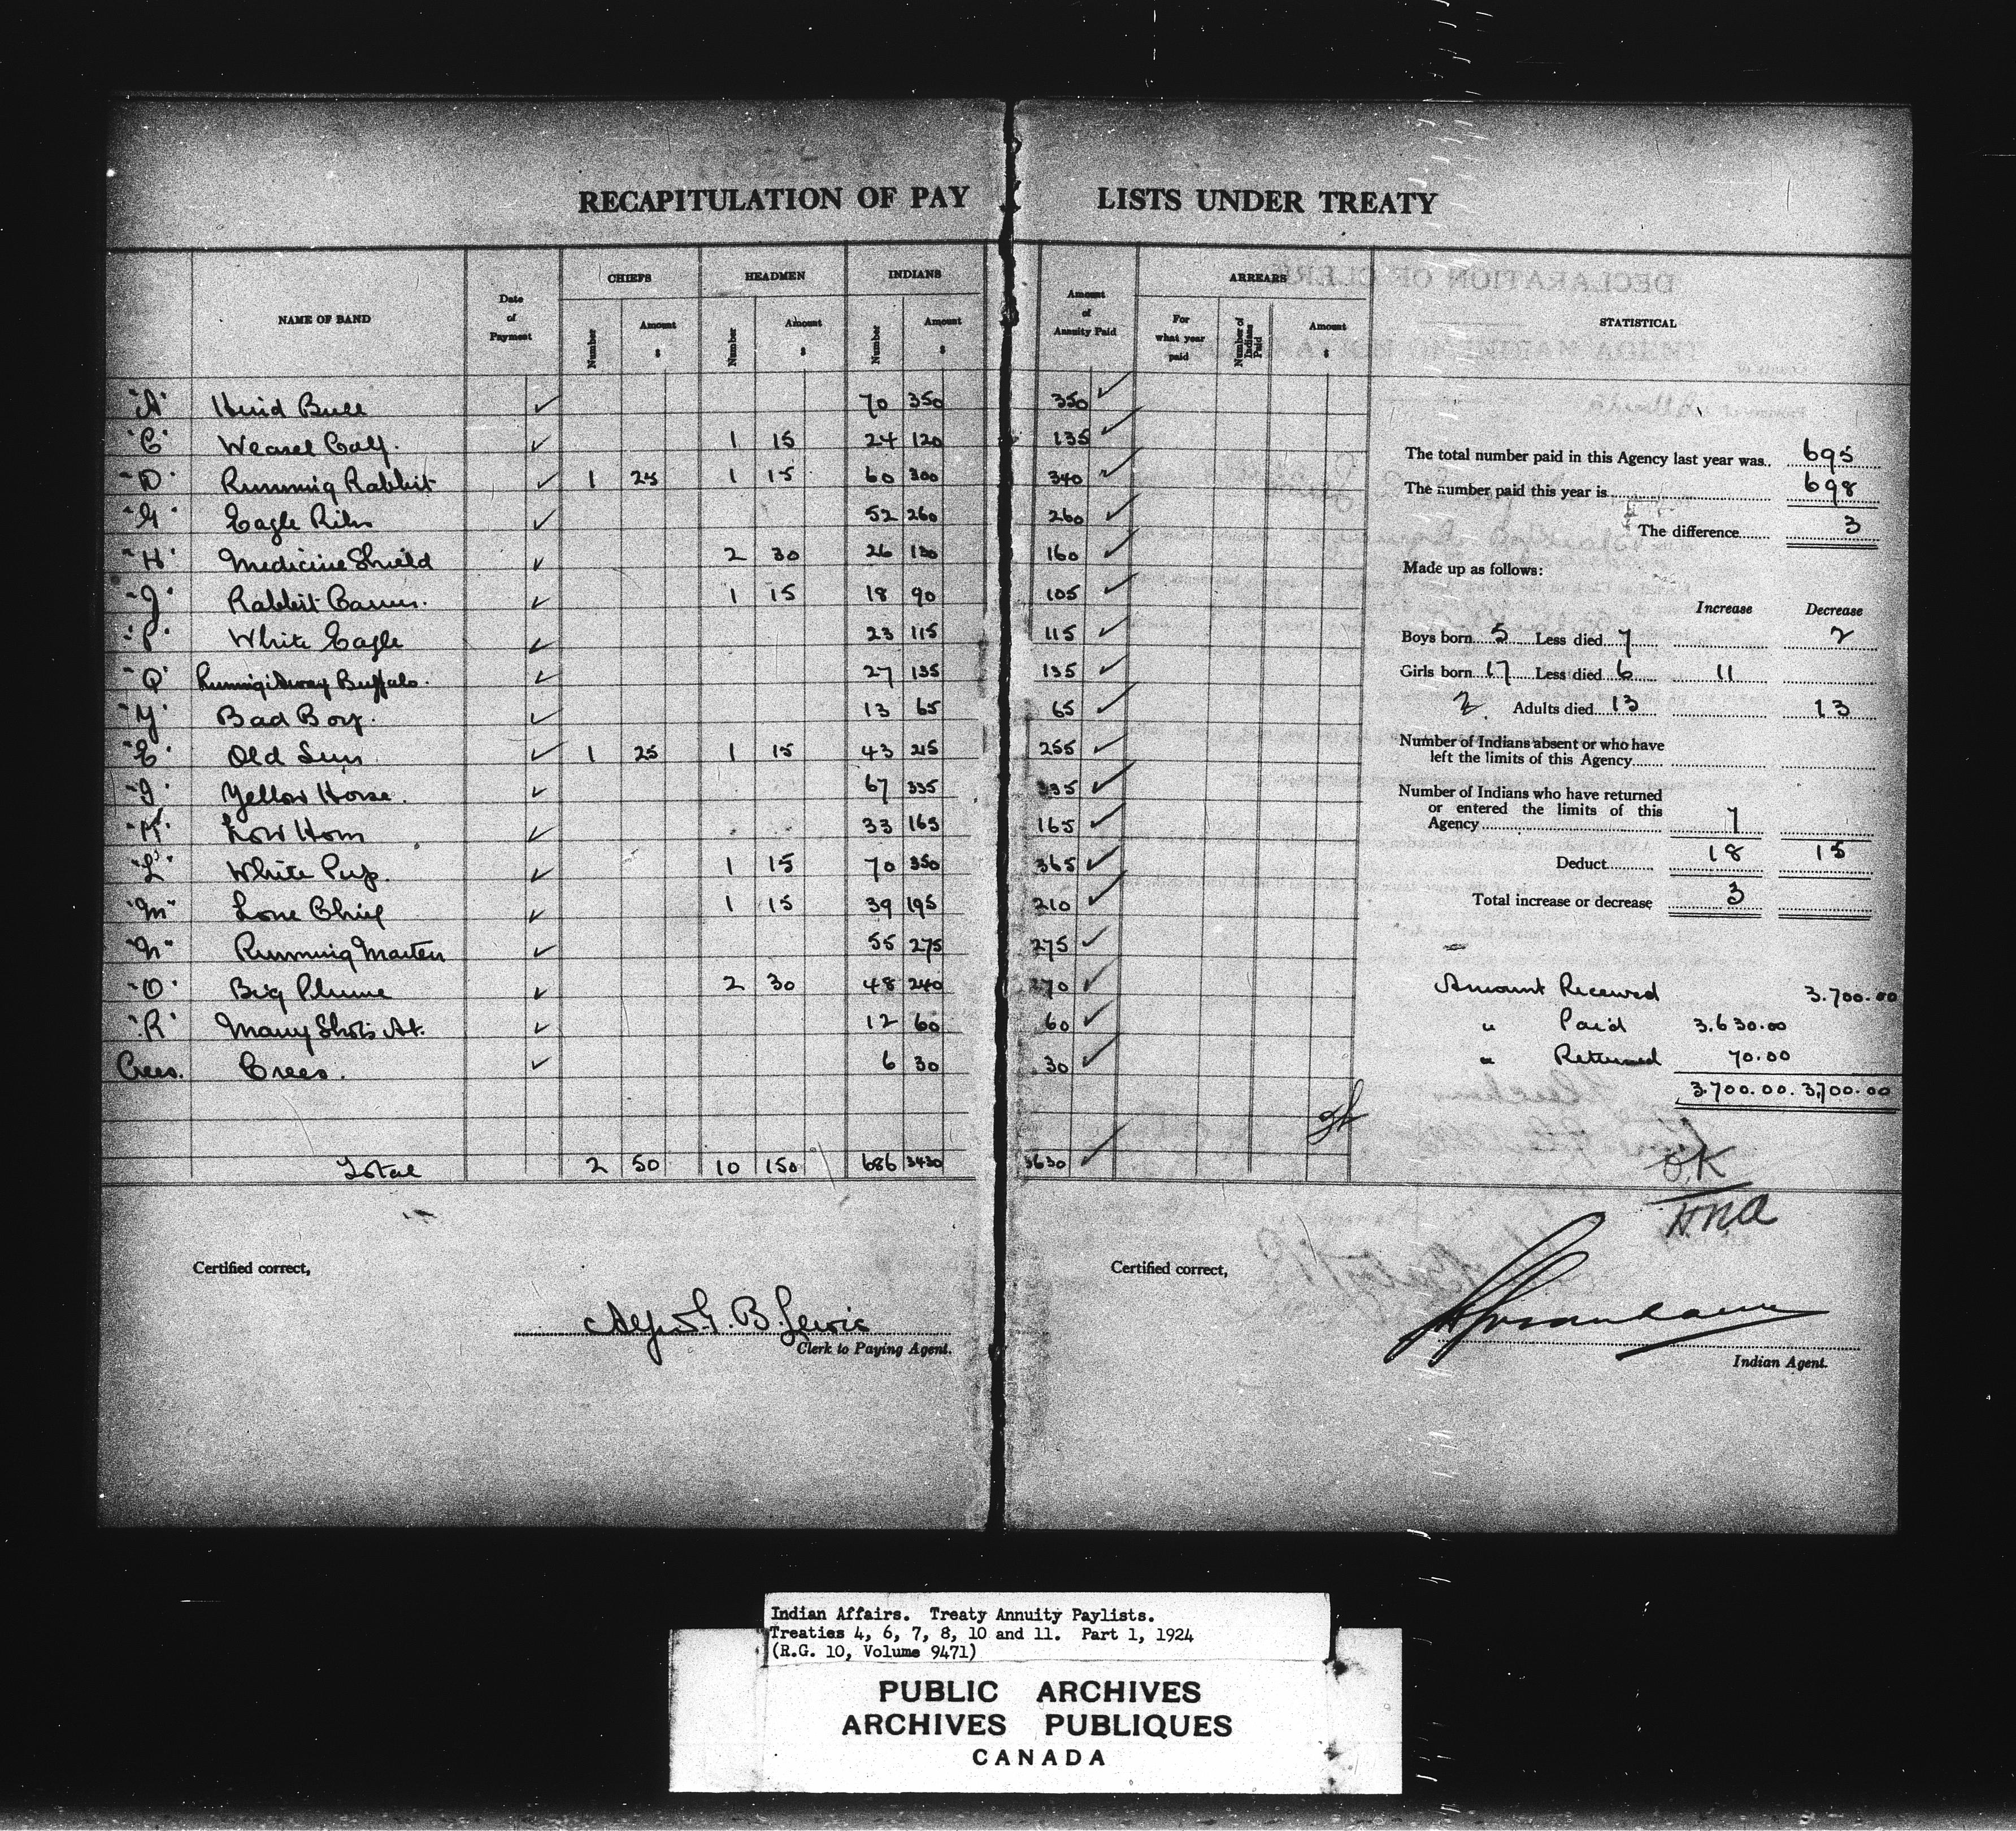 RECAPITULATION OF PAY LISTS UNDER TREATY
NAME OF BAND
Date of Payment
CHIEFS
Number
Amount $
HEADMEN
Number
Amount $
INDIANS
Number
Amount $
Amount of Annuity Paid
ARREARS
For what year paid
Number of Indians Paid
Amount $
STATISTICAL
"A" Bull ✓ 70 350 350 ✓
"C" Weasel Calf. ✓ 1 15 24 120 135 ✓
"D" Running Rabbit ✓ 1 25 1 15 60 300 340 ✓
"G" Eagle Ribs ✓ 52 260 260 ✓
"H" Medicine Shield ✓ 2 30 26 130 160 ✓
"J" Rabbit Carrier. ✓ 1 15 18 90 105 ✓
"P" White Eagle ✓ 23 115 115 ✓
"Q" Running Away Buffalo. ✓ 27 135 135 ✓
"Y" Bad Boy. ✓ 13 65 65 ✓
"E" Old Sun ✓ 1 25 1 15 43 215 255 ✓
"I" Yellow Horse. ✓ 67 335 335 ✓
"K" Low Horn ✓ 33 165 165 ✓
"L" White Pup. ✓ 1 15 70 350 365 ✓
"M" Lone Chief ✓ 1 15 39 195 210 ✓
"N" Running Marten ✓ 55 275 275 ✓
"O" Big Plume ✓ 2 30 48 240 270 ✓
"R" Many Shots At. ✓ 12 60 60 ✓
Crees. Crees. ✓ 6 30 30 ✓
Total 2 50 10 150 686 3430 3630 ✓
The total number paid in this Agency last year was.. 695
The number paid this year is 698
The difference 3
Made up as follows:
Increase Decrease
Boys born 5 Less died 7 2
Girls born 17 Less died 6 11
2 Adults died 13 13
Number of Indians absent or who have
left the limits of this Agency
Number of Indians who have returned
or entered the limits of this
Agency 7
18 15
Deduct
Total increase or decrease 3
Amount Received 3.700.00
" Paid 3.630.00
" Returned 70.00
3.700.00. 3,700.00
OK
Certified correct,
G. B. Lewis
Clerk to Paying Agent.
Certified correct,
Indian Agent.
Indian Affairs. Treaty Annuity Paylists.
Treaties 4, 6, 7, 8, 10 and 11. Part 1, 1924
(R.G. 10, Volume 9471)
PUBLIC ARCHIVES
ARCHIVES PUBLIQUES
CANADA